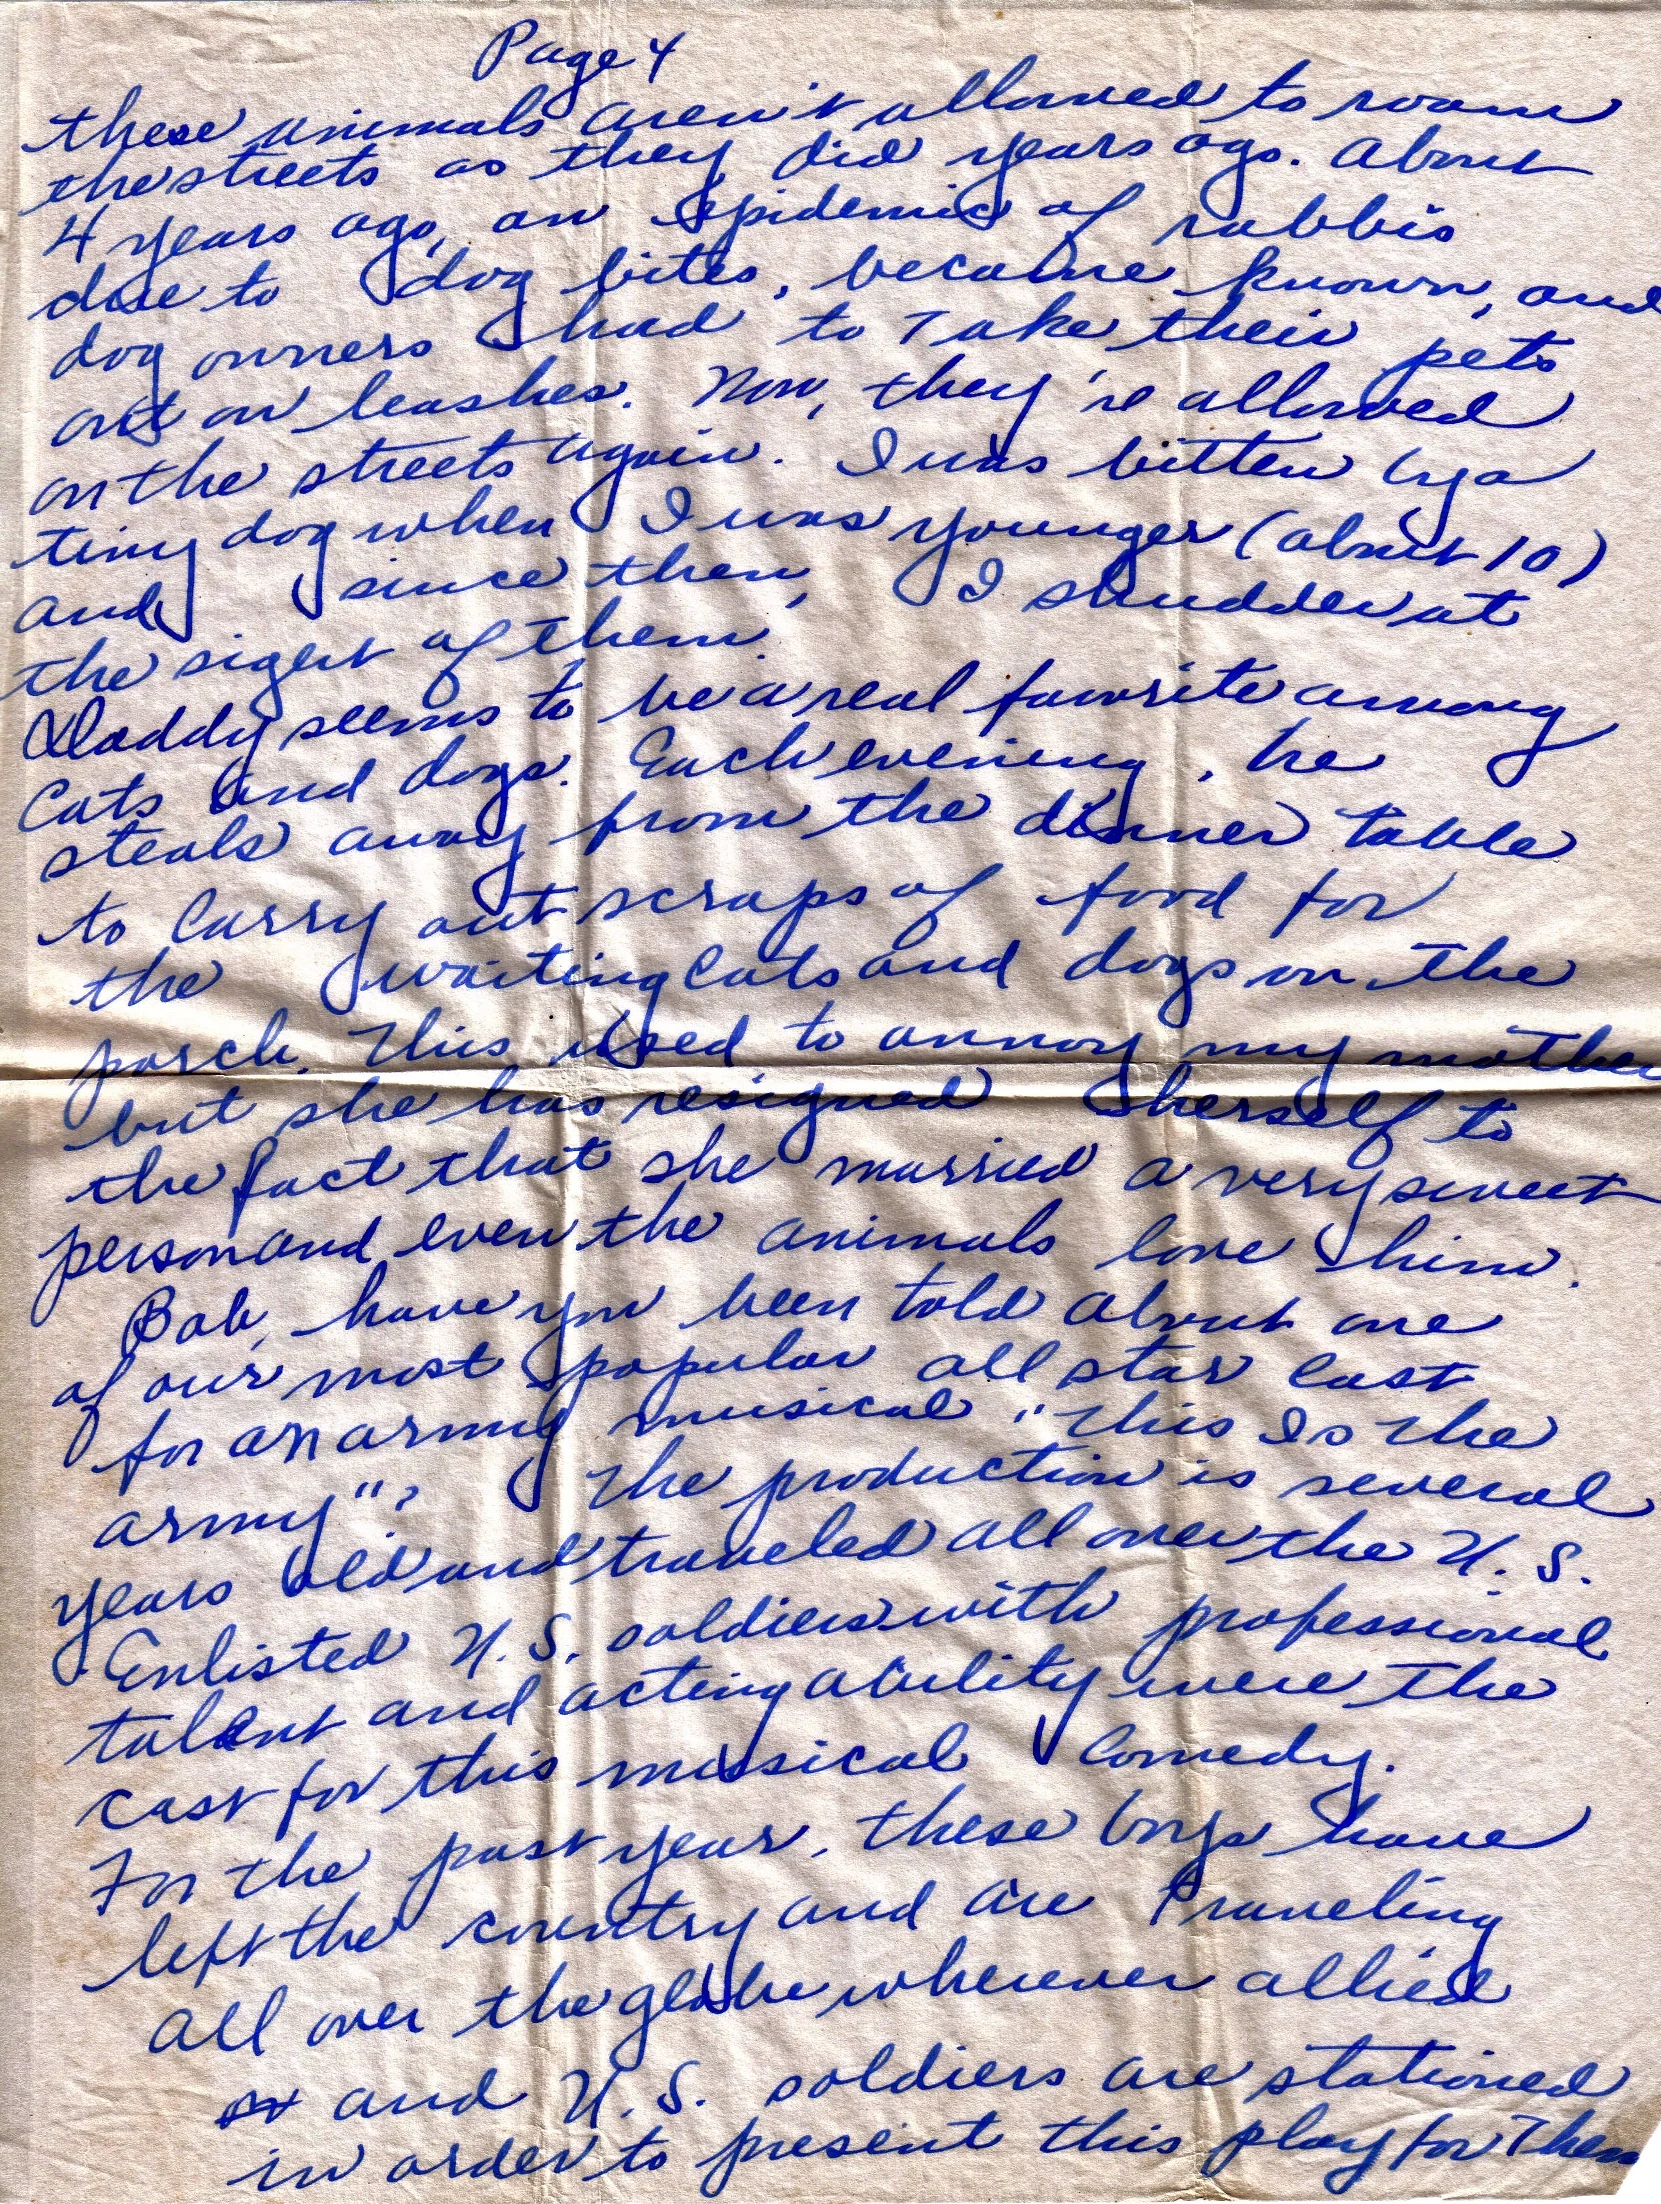 Page 4
these animals aren't allowed to roam
the streets as they did years ago. About
4 years ago, an epidemic of rabbis
due to dog bites, became known, and
dog owners had to take their pets
out on leashes. Now, they're allowed
on the streets again. I was bitten by a
tiny dog when I was younger (about 10)
and since then, I shudder at
the sight of them.
Daddy seems to be a real favorite among
cats and dogs. Each evening, he
steals away from the dinner table
to carry out scraps of food for
the waiting cats and dogs on the
porch. This used to annoy my mother
but she has resigned herself to
the fact that she married a very sweet
person and even the animals love him.
Bob, have you been told about one
of our most popular all star cast
for an army musical, "This Is The
Army"? The production is several
years old and traveled all over the U.S.
Enlisted U.S. soldiers with professional
talent and acting ability were the
cast for this musical comedy.
For the past year, these boys have
left the country and are traveling
all over the globe wherever allied
and U.S. soldiers are stationed
in order to present this play for them